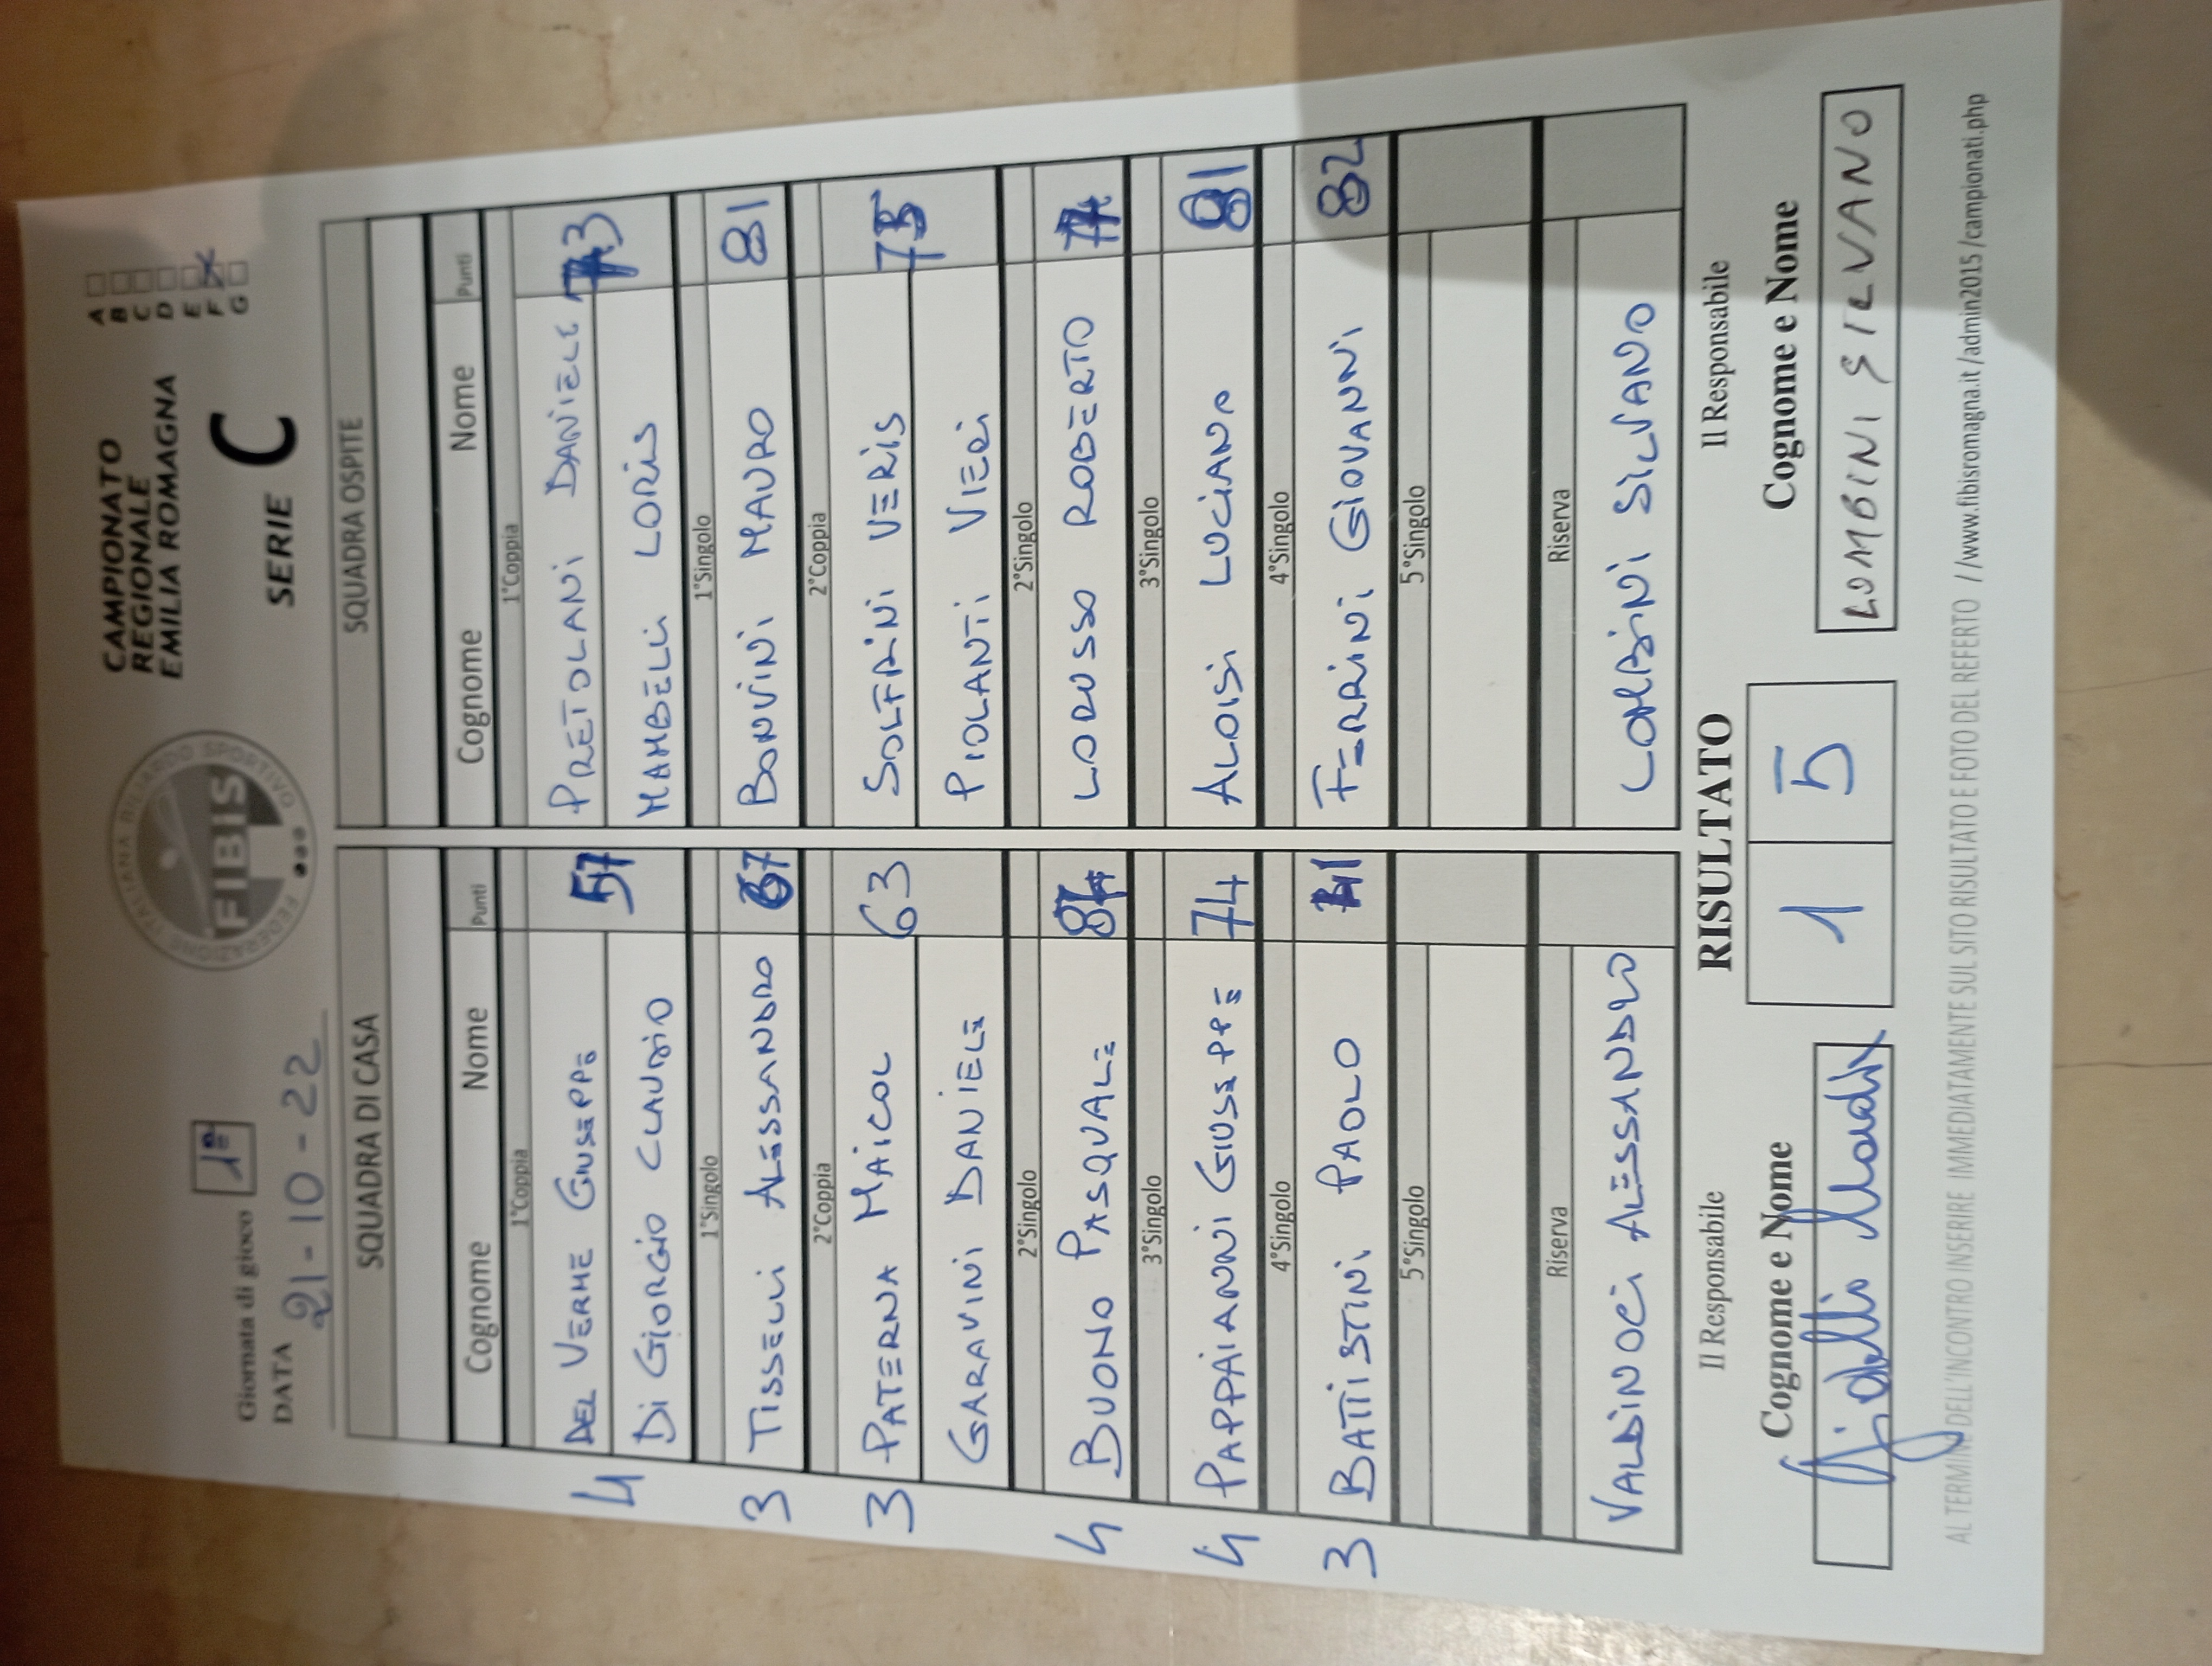 Giornata di gioco 1ª
DATA 21-10-22
FEDERAZIONE ITALIANA BILIARDO SPORTIVO
FIBIS
CAMPIONATO
REGIONALE
EMILIA ROMAGNA
SERIE C
A
B
C
D
E
F X
G
SQUADRA DI CASA SQUADRA OSPITE
Cognome Nome Punti Cognome Nome Punti
1°Coppia 1°Coppia
4 DEL VERME GIUSEPPE 57 PRETOLANI DANIELE 73
DI GIORGIO CLAUDIO MAMBELLI LORIS
1°Singolo 1°Singolo
3 TISSELLI ALESSANDRO 67 BONVINI MAURO 81
2°Coppia 2°Coppia
3 PATERNA MAICOL 63 SOLFRINI VERIS 75
GARAVINI DANIELE PIOLANTI VIERI
2°Singolo 2°Singolo
4 BUONO PASQUALE 84 LORUSSO ROBERTO
3°Singolo 3°Singolo
4 PAPPAIANNI GIUSEPPE 74 ALOISI LUCIANO 81
4°Singolo 4°Singolo
3 BATTISTINI PAOLO FERRINI GIOVANNI 82
5°Singolo 5°Singolo
Riserva Riserva
VALDINOCI ALESSANDRO LOMBINI SILVANO
Il Responsabile RISULTATO Il Responsabile
Cognome e Nome 1 5 Cognome e Nome
LOMBINI SILVANO
AL TERMINE DELL'INCONTRO INSERIRE IMMEDIATAMENTE SUL SITO RISULTATO E FOTO DEL REFERTO //www.fibisromagna.it/admin2015/campionati.php